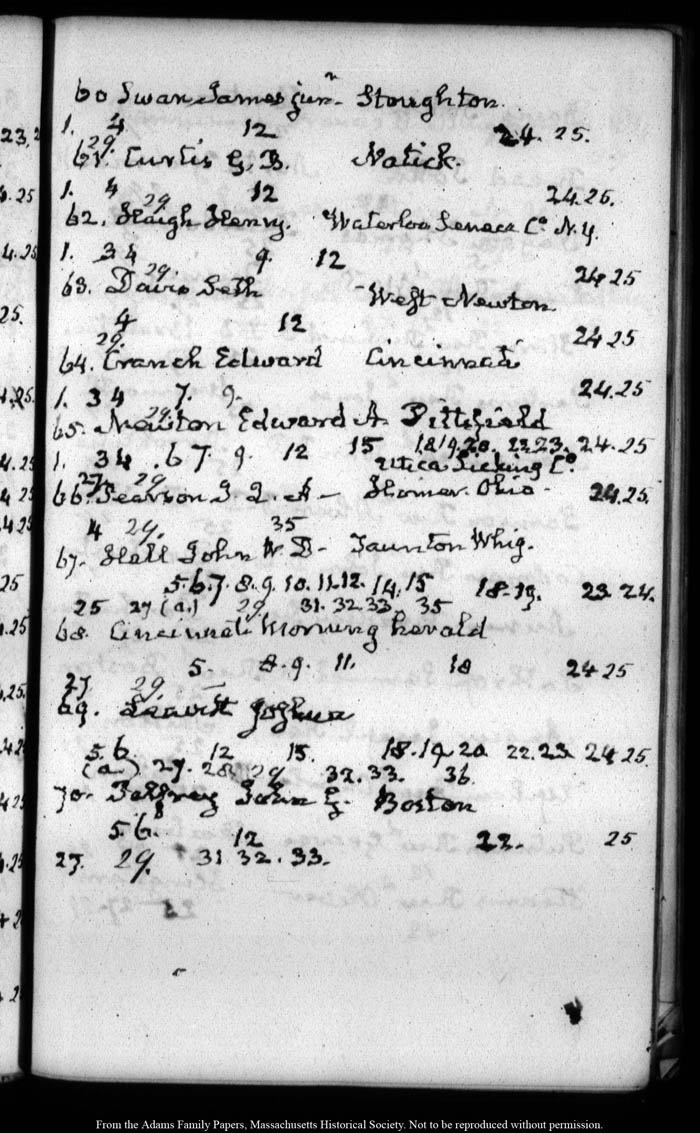 60 Swan James junr Stoughton.
1. 4 12 24. 25.
29
61. Curtis G. B. Natick.
1. 4 12 24.25.
29
62. Haigh Henry. Waterloo Seneca Co. N.Y.
1. 34 9. 12 24 25
29.
63. Davis Seth West Newton
4 12 24 25
29.
64. Cranch Edward Cincinnati
1. 34 7. 9. 24.25
29.
65. Newton Edward A. Pittsfield
1. 34. 67. 9. 12 15 18.19.20. 22.23. 24.25
27. 29. Utica Licking Co.
66. Pearson I. Q. A— Homer. Ohio— 24.25.
4 29. 35
67. Hall John W. D— Taunton Whig.
5.6.7. 8.9. 10. 11.12. 14. 15 18.19. 23 24.
25 27 (a.) 29. 31. 32.33. 35
68. Cincinnati Morning herald
5. 8.9. 11. 18 24 25
27. 29.
69. Leavitt Joshua
5.6. 12 15. 18.19.20 22.23 24 25
(a.) 27. 28. 29 32.33. 36
70. Palfrey John G. Boston
5.6. 8 12 22. 25
27. 29. 31. 32. 33.
From the Adams Family Papers, Massachusetts Historical Society. Not to be reproduced without permission.